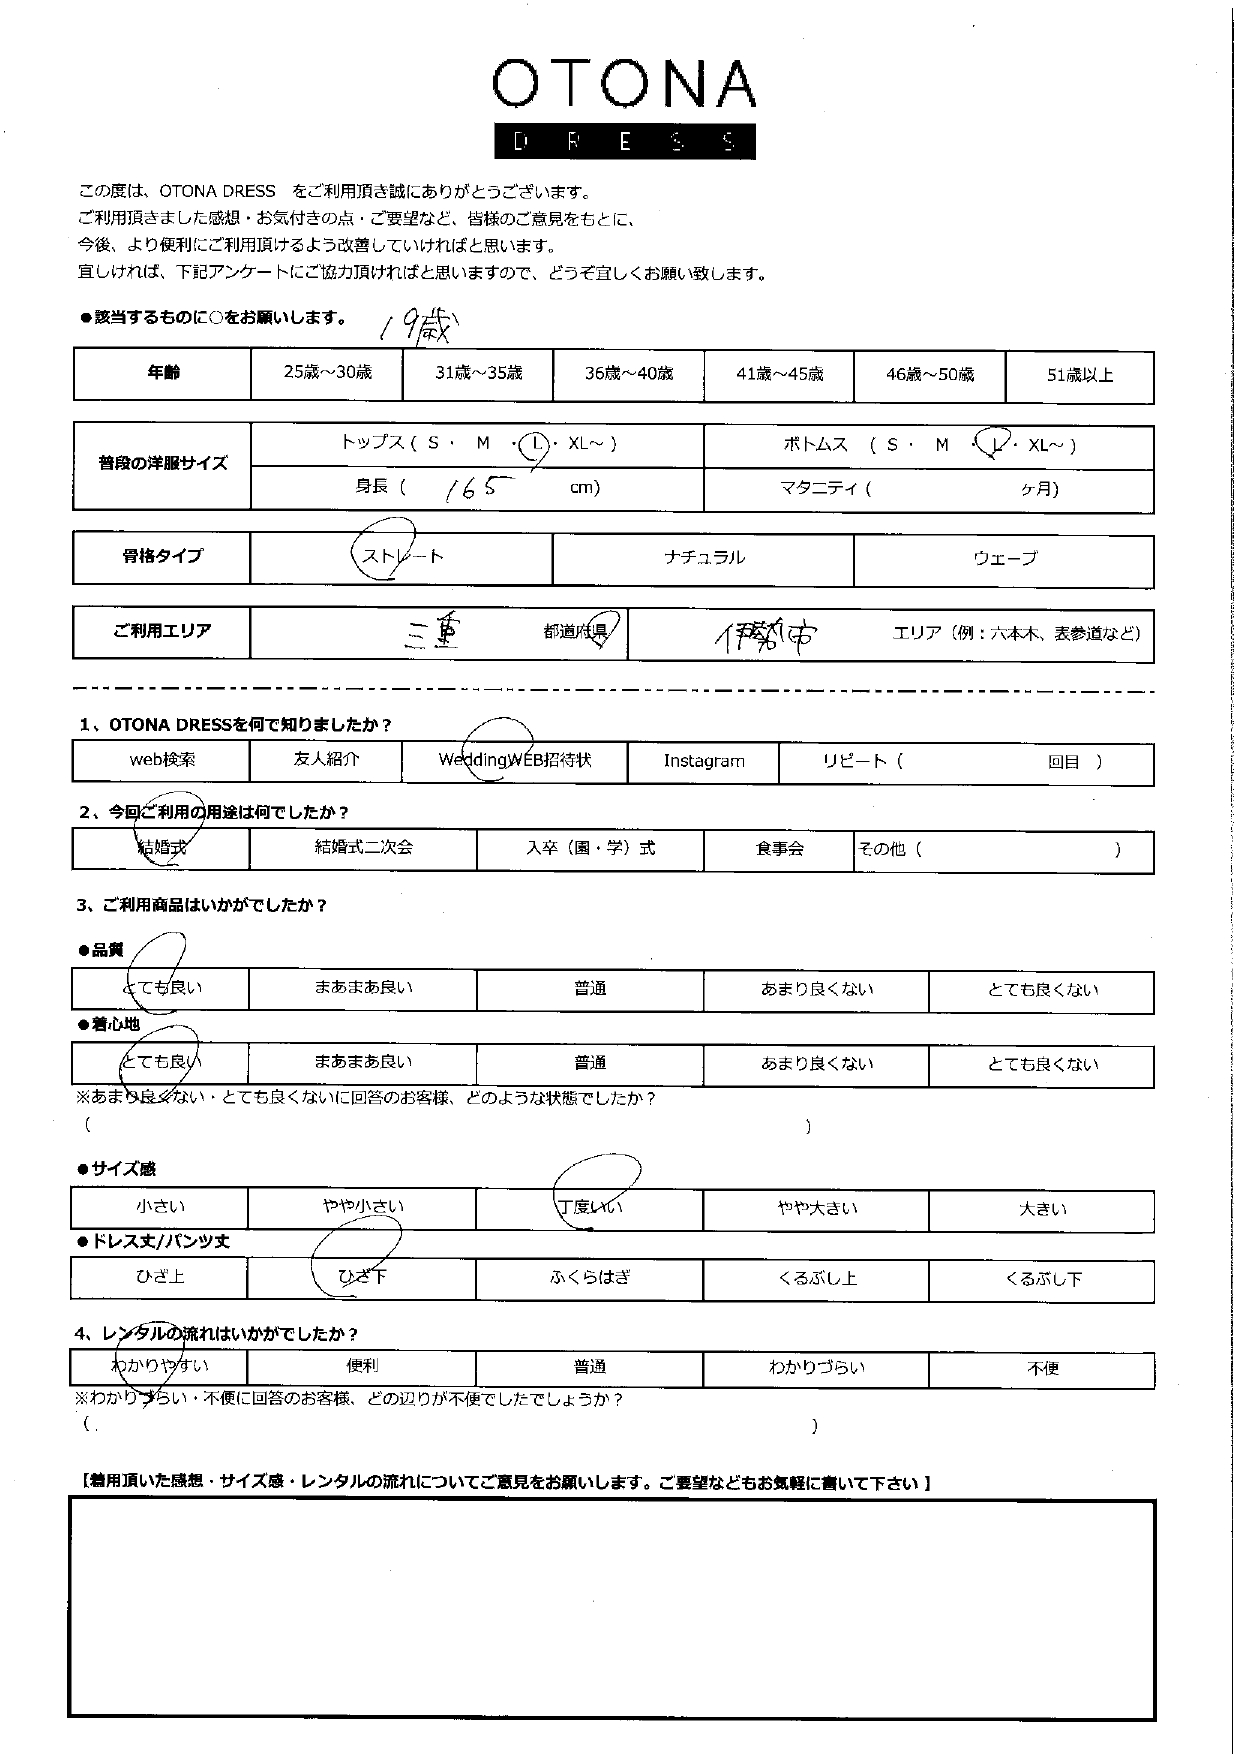 OTONA
DRESS
この度は、OTONA DRESS　をご利用頂き誠にありがとうございます。
ご利用頂きました感想・お気付きの点・ご要望など、皆様のご意見をもとに、
今後、より便利にご利用頂けるよう改善していければと思います。
宜しければ、下記アンケートにご協力頂ければと思いますので、どうぞ宜しくお願い致します。
●該当するものに○をお願いします。 19歳
年齢 25歳～30歳 31歳～35歳 36歳～40歳 41歳～45歳 46歳～50歳 51歳以上
普段の洋服サイズ トップス ( S ・ M ・ L ・ XL～ ) ボトムス ( S ・ M ・ L ・ XL～ )
身長 ( 165 cm) マタニティ ( ヶ月)
骨格タイプ ストレート ナチュラル ウェーブ
ご利用エリア 三重 都道府県 伊勢市 エリア（例：六本木、表参道など）
1、OTONA DRESSを何で知りましたか？
web検索 友人紹介 WeddingWEB招待状 Instagram リピート ( 回目 )
2、今回ご利用の用途は何でしたか？
結婚式 結婚式二次会 入卒（園・学）式 食事会 その他 ( )
3、ご利用商品はいかがでしたか？
●品質
とても良い まあまあ良い 普通 あまり良くない とても良くない
●着心地
とても良い まあまあ良い 普通 あまり良くない とても良くない
※あまり良くない・とても良くないに回答のお客様、どのような状態でしたか？
( )
●サイズ感
小さい やや小さい 丁度いい やや大きい 大きい
●ドレス丈/パンツ丈
ひざ上 ひざ下 ふくらはぎ くるぶし上 くるぶし下
4、レンタルの流れはいかがでしたか？
わかりやすい 便利 普通 わかりづらい 不便
※わかりづらい・不便に回答のお客様、どの辺りが不便でしたでしょうか？
( )
【着用頂いた感想・サイズ感・レンタルの流れについてご意見をお願いします。ご要望などもお気軽に書いて下さい 】